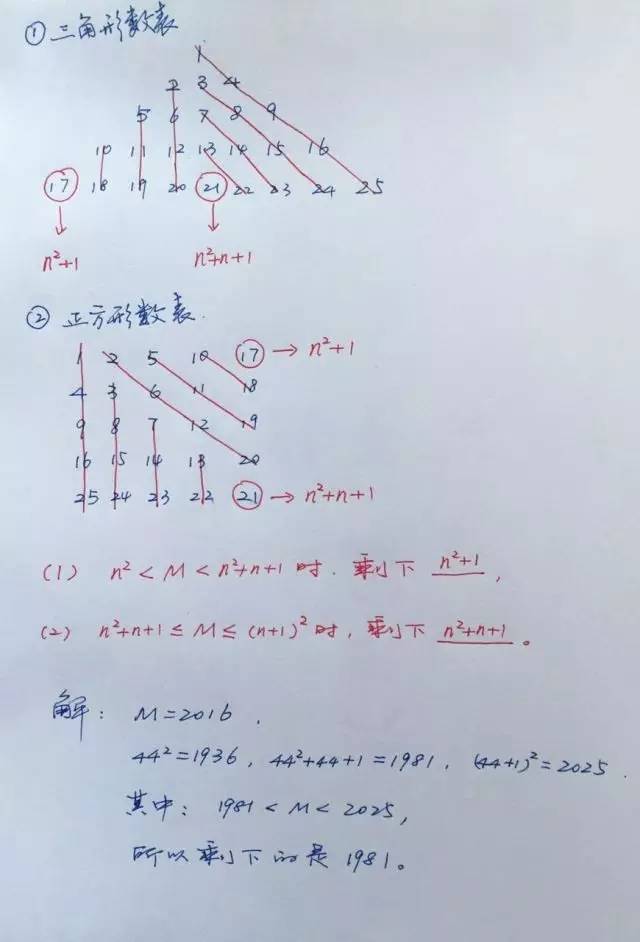 ① 三角形数表
1
2 3 4
5 6 7 8 9
10 11 12 13 14 15 16
17 18 19 20 21 22 23 24 25
n²+1 n²+n+1
② 正方形数表.
1 2 5 10 17 → n²+1
4 3 6 11 18
9 8 7 12 19
16 15 14 13 20
25 24 23 22 21 → n²+n+1
(1) n² < M < n²+n+1 时. 剩下 n²+1,
(2) n²+n+1 ≤ M ≤ (n+1)² 时, 剩下 n²+n+1。
解: M=2016,
44²=1936, 44²+44+1=1981, (44+1)²=2025.
其中: 1981 < M < 2025,
所以剩下的是 1981。